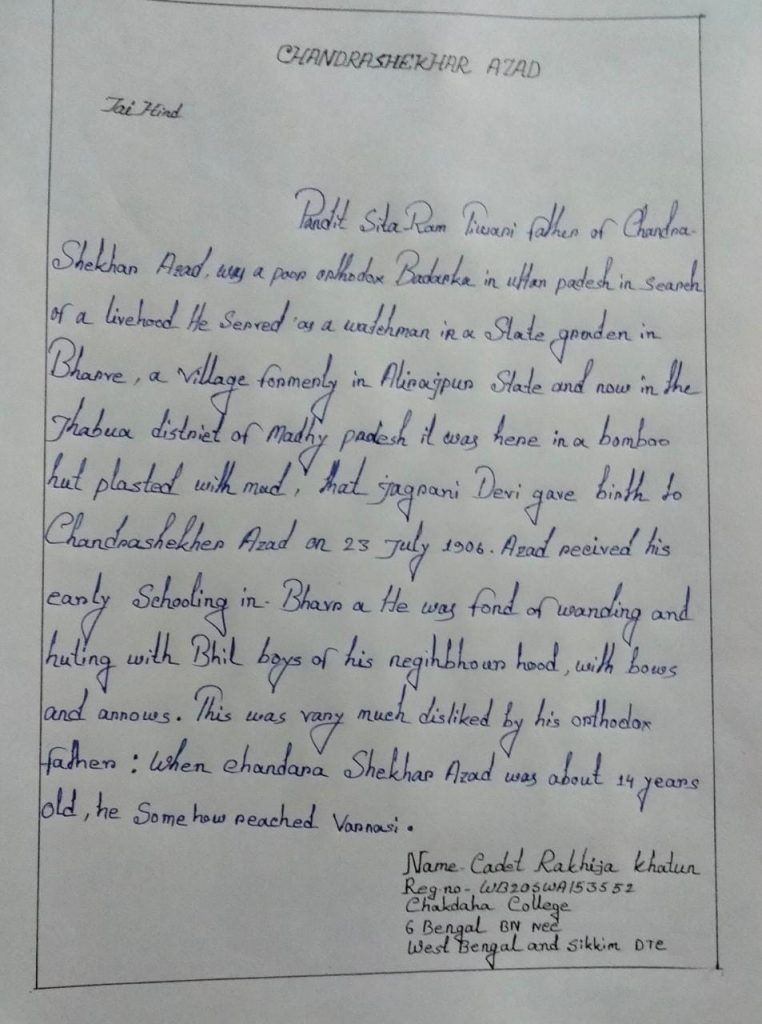 CHANDRASHEKHAR AZAD
Jai Hind
Pandit Sita Ram Tiwari father of Chandra-
Shekhar Azad, was a poor orthodox Badarka in uttar padesh in search
of a livehood He Served as a watchman in a State graden in
Bharve, a village formerly in Alirajpur State and now in the
Jhabua district of Madhy padesh it was here in a bomboo
hut plasted with mud, that jagrani Devi gave birth to
Chandrashekher Azad on 23 July 1906. Azad recived his
early Schooling in Bhavr a He was fond of wanding and
huting with Bhil boys of his negihbhour hood, with bows
and arrows. This was vary much disliked by his orthodox
father : When chandara Shekhar Azad was about 14 years
old, he Some how reached Varnasi.
Name- Cadet Rakhija Khatun
Reg no- WB20SWA153552
Chakdaha College
6 Bengal BN NCC
West Bengal and Sikkim DTE